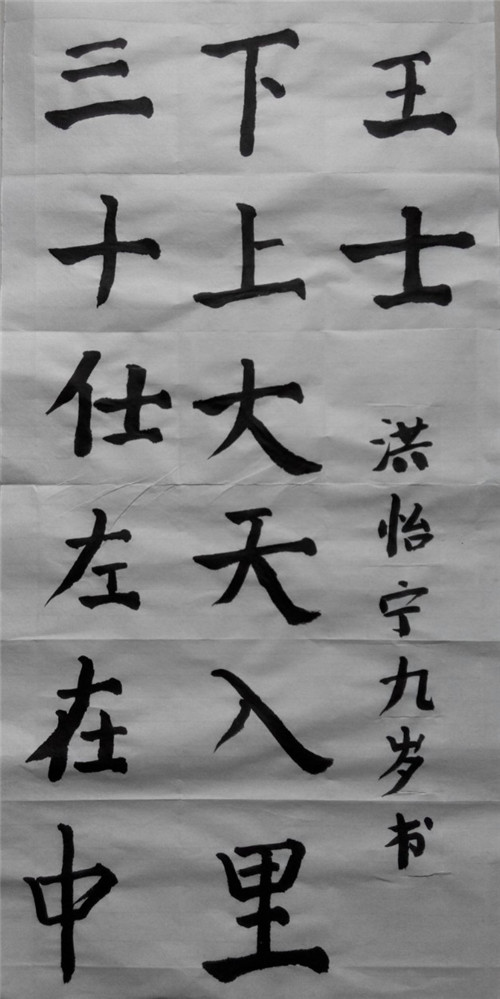 三十仕左在中
下上大天入里
王士
洪怡宁九岁书